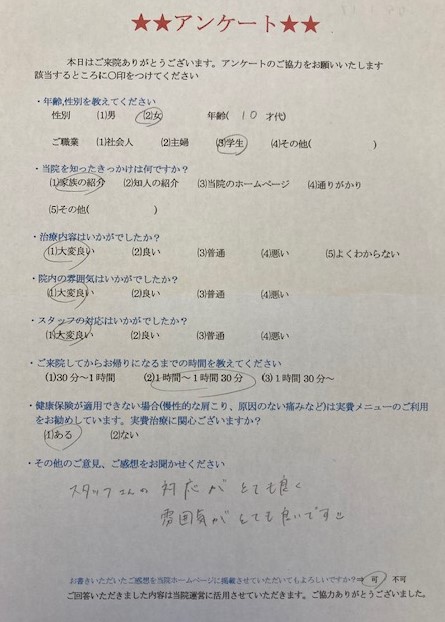 ★★アンケート★★
本日はご来院ありがとうございます。アンケートのご協力をお願いいたします
該当するところに〇印をつけてください
・年齢,性別を教えてください
性別 (1)男 (2)女 年齢( 10 才代)
ご職業 (1)社会人 (2)主婦 (3)学生 (4)その他( )
・当院を知ったきっかけは何ですか？
(1)家族の紹介 (2)知人の紹介 (3)当院のホームページ (4)通りがかり
(5)その他( )
・治療内容はいかがでしたか？
(1)大変良い (2)良い (3)普通 (4)悪い (5)よくわからない
・院内の雰囲気はいかがでしたか？
(1)大変良い (2)良い (3)普通 (4)悪い
・スタッフの対応はいかがでしたか？
(1)大変良い (2)良い (3)普通 (4)悪い
・ご来院してからお帰りになるまでの時間を教えてください
(1)30分～1時間 (2)1時間～1時間30分 (3)1時間30分～
・健康保険が適用できない場合(慢性的な肩こり、原因のない痛みなど)は実費メニューのご利用
をお勧めしています。実費治療に関心ございますか？
(1)ある (2)ない
・その他のご意見、ご感想をお聞かせください
スタッフさんの対応がとても良く
雰囲気がとても良いです
お書きいただいたご感想を当院ホームページに掲載させていただいてもよろしいですか？⇒ 可 不可
ご回答いただきました内容は当院運営に活用させていただきます。ご協力ありがとうございました。